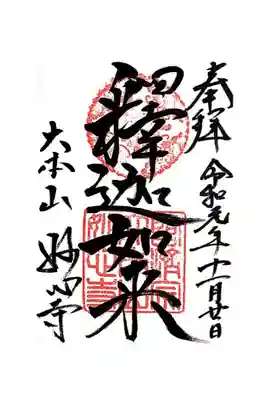 奉拝 令和元年十一月廿日
釋迦如来
大本山 妙心寺